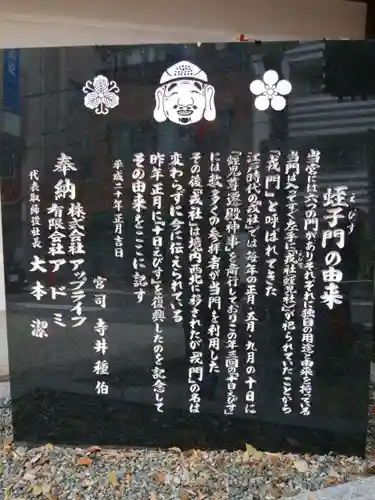 えびす
蛭子門の由来
当宮には六つの門がありそれぞれに独自の用途と由来を持っている
当門は入ってすぐ左手に「戎社(蛭児社)」が祀られていたことから
「戎門」と呼ばれてきた
江戸時代の「戎社」では毎年の正月・五月・九月の十日に
「蛭児尊遷殿神事」を斎行しておりこの年三回の「十日えびす」
には数多くの参拝者が当門を利用した
その後「戎社」は境内西北に移されたが「戎門」の名は
変わらずに今に伝えられている
昨年正月に「十日えびす」を復興したのを記念して
その由来をここに記す
平成二十年正月吉日
宮司 寺井種伯
奉納 株式会社アップライフ
有限会社アドミ
代表取締役社長 大本 潔